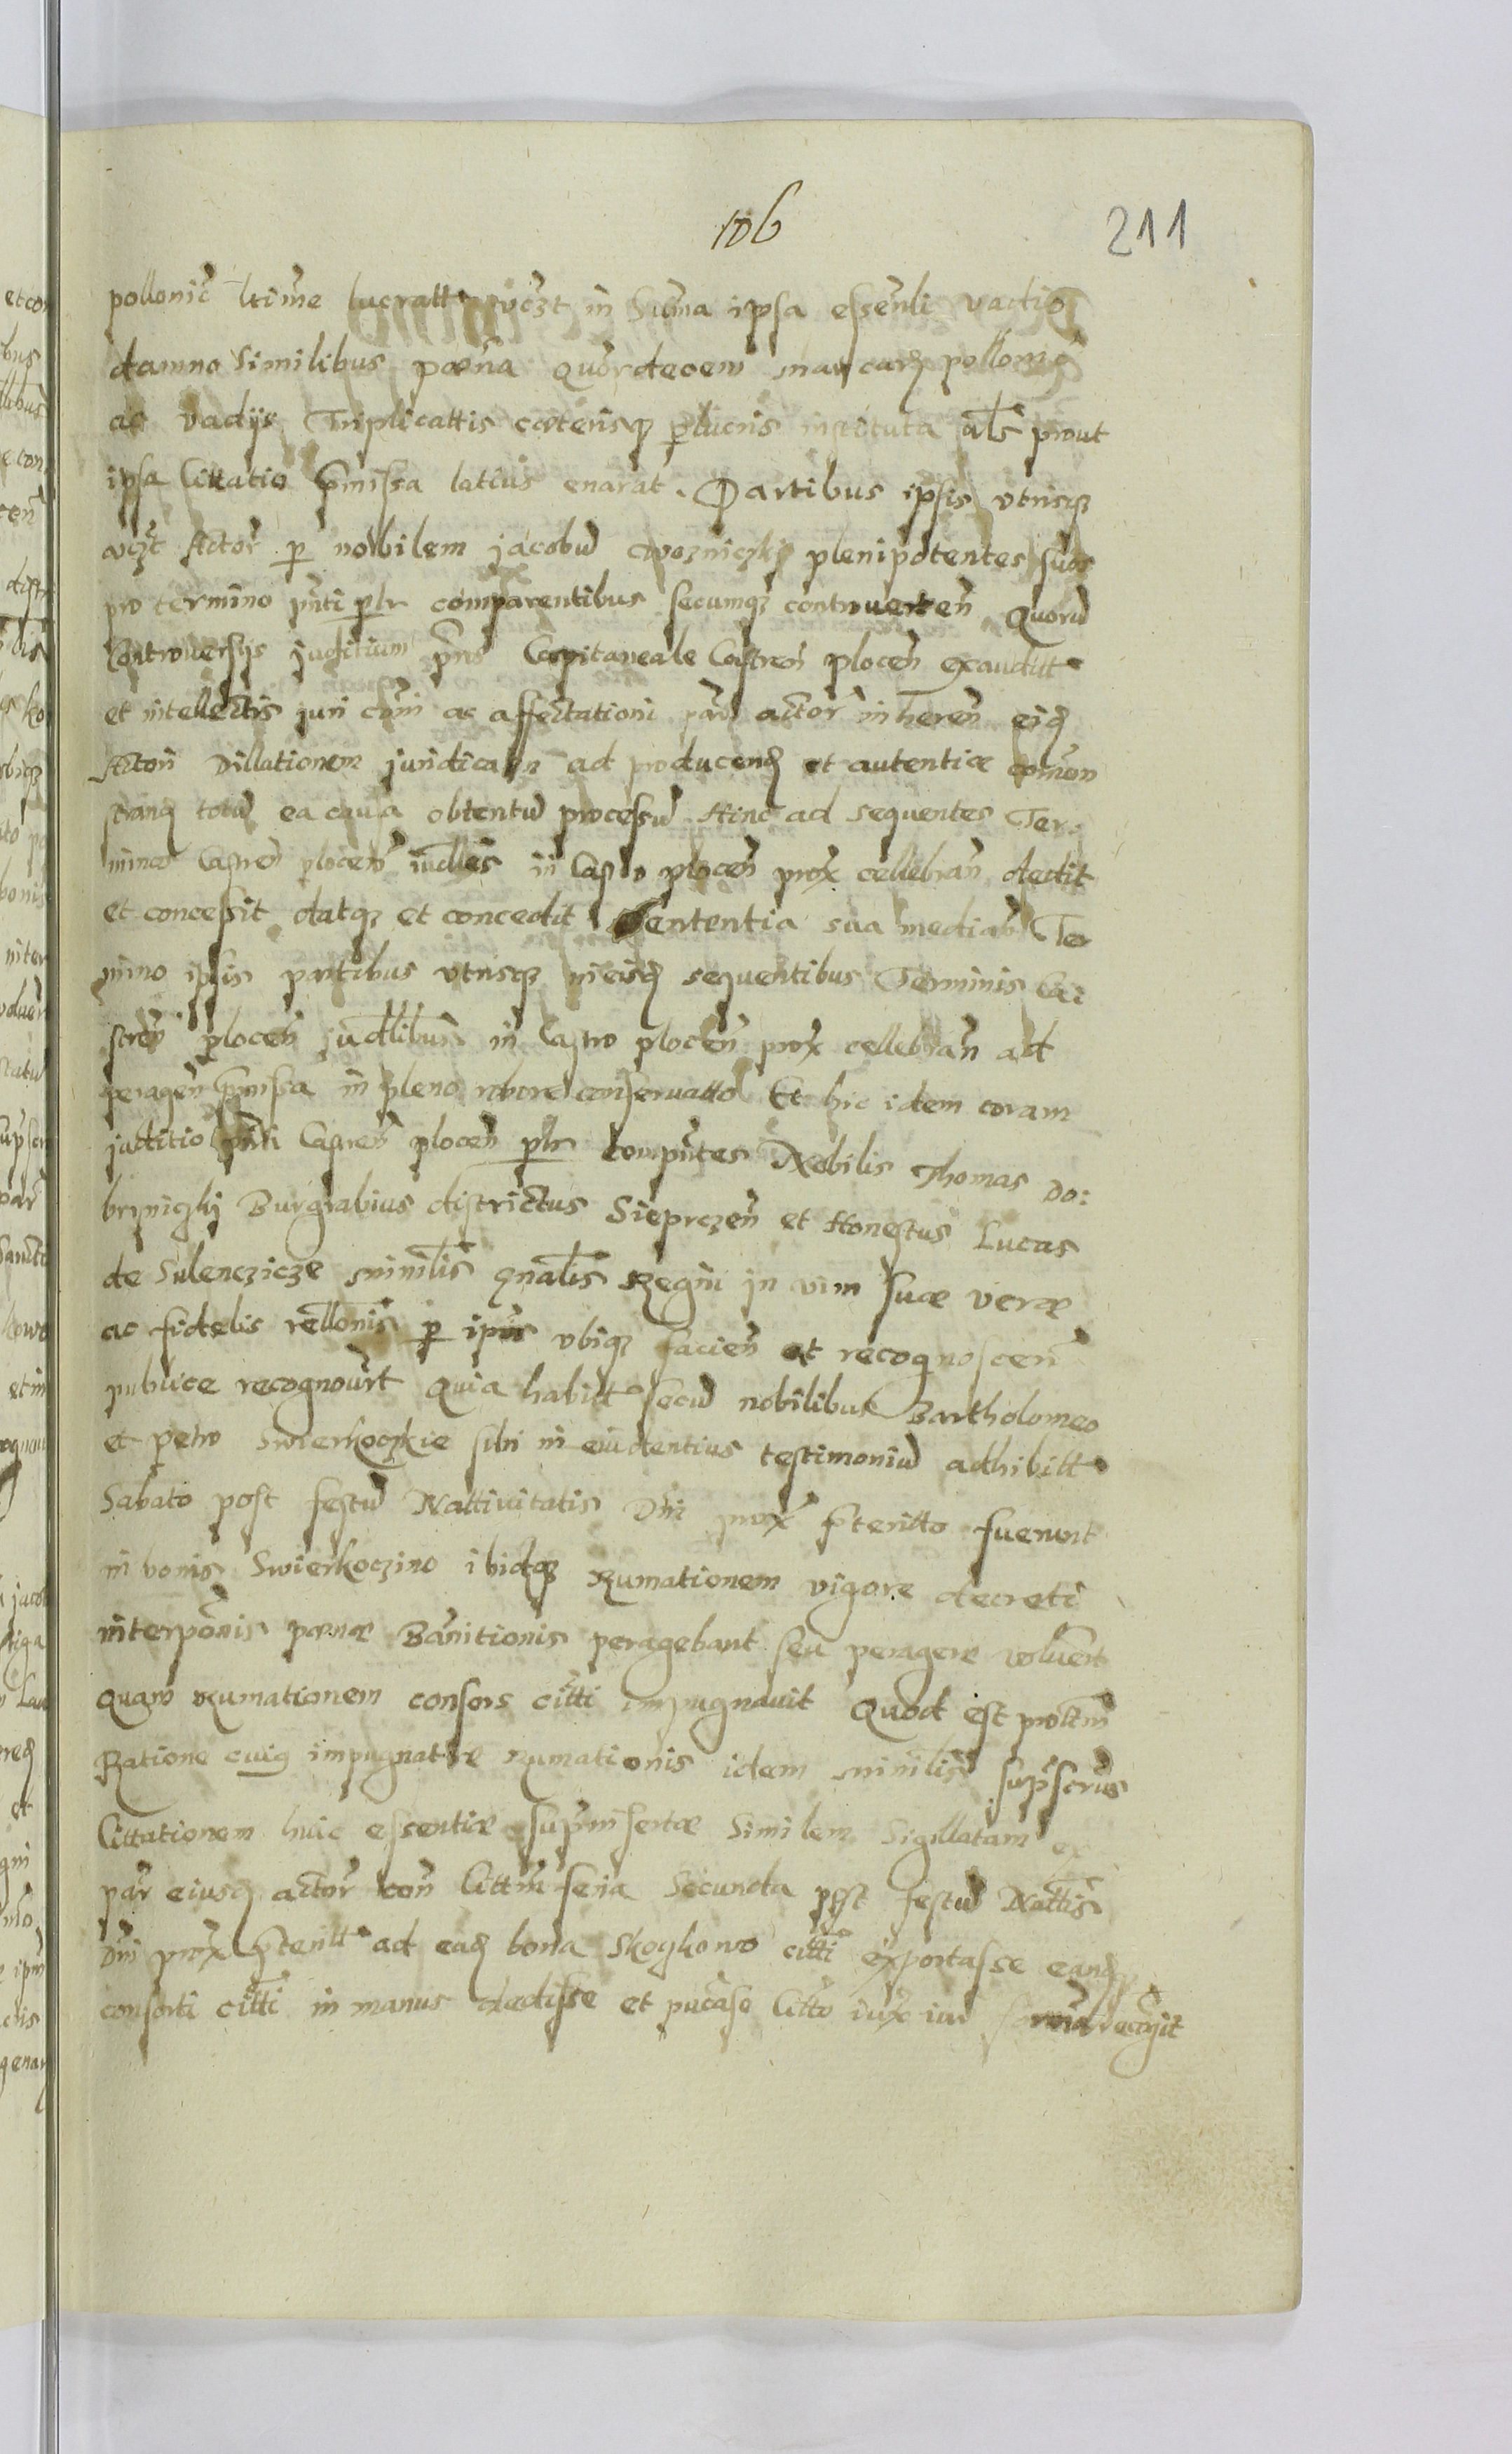 106
211
pollonic ltime lucratt vczt in Suma ipsa essenli vadio
damno similibus poena quordecem marcarz pollonig
ac vadijs Triplicattis coeterisqz plucris instituta als prout
ipsa Cittatio pmissa latius enarat. Partibus ipsis vtrisqz
vczt Actor p nobilem jacobu plenipotentes suos
pro termino pnti plr comparentibus secumqz controuerten Quoru
Controversijs juditium pns Capitaneale Castren plocen exauditt
et intellectis juri coni ac affectationi par actor inheren eid
Actori Dillationem juridicam ad producend et autentice comon
strand totu ea causa obtentu processu hinc ad sequentes Ter:
minos Castren plocen iudles in Castro plocen prox cellebran dedit
et concessit datqz et concedit Sententia sua median Ter
mino ipsis partibus vtrisqz in eisd sequentibus Terminis Ca:
stren plocen judlibus in Castro plocen prox cellebran ad
peragen pmissa in pleno robore conseruatto Et hic idem coram
juditio pnti Castren plocen plr comparentes Nobilis Thomas Do:
brzniczkj Burgrabius districtus Sieprczen et Honestus Lucas
de Sulenczicze minilis gnalis Regni in vim suae verae
ac fidelis rellonis p ipos vbiqz facien et recognoscen
publice recognourt Quia habitt secu nobilibus Bartholomeo
et petro Swierkoczkie sibi in euidentius testimoniu adhibitt
Sabato post festu Nattiuitatis Dni prox pteritto fuerunt
in bonis Swierkoczino ibidqz Rumationem vigore decreti
interponis poenae Banitionis peragebant seu peragere voluert
Quam rumationem consors citti impugnauit Quod est proltm
Ratione cuig impugnatae rumationis idem minilis supscrus
Cittationem huic essentiae suprinsertae similem Sigillatam ex
par eiusd actor con Cittm feria Secunda post festu Nattis
Dni prox pteritt ad ead bona Skoczkowo citti exportasse eand
consorti citti in manus dedisse et pucasse Citto iux iur